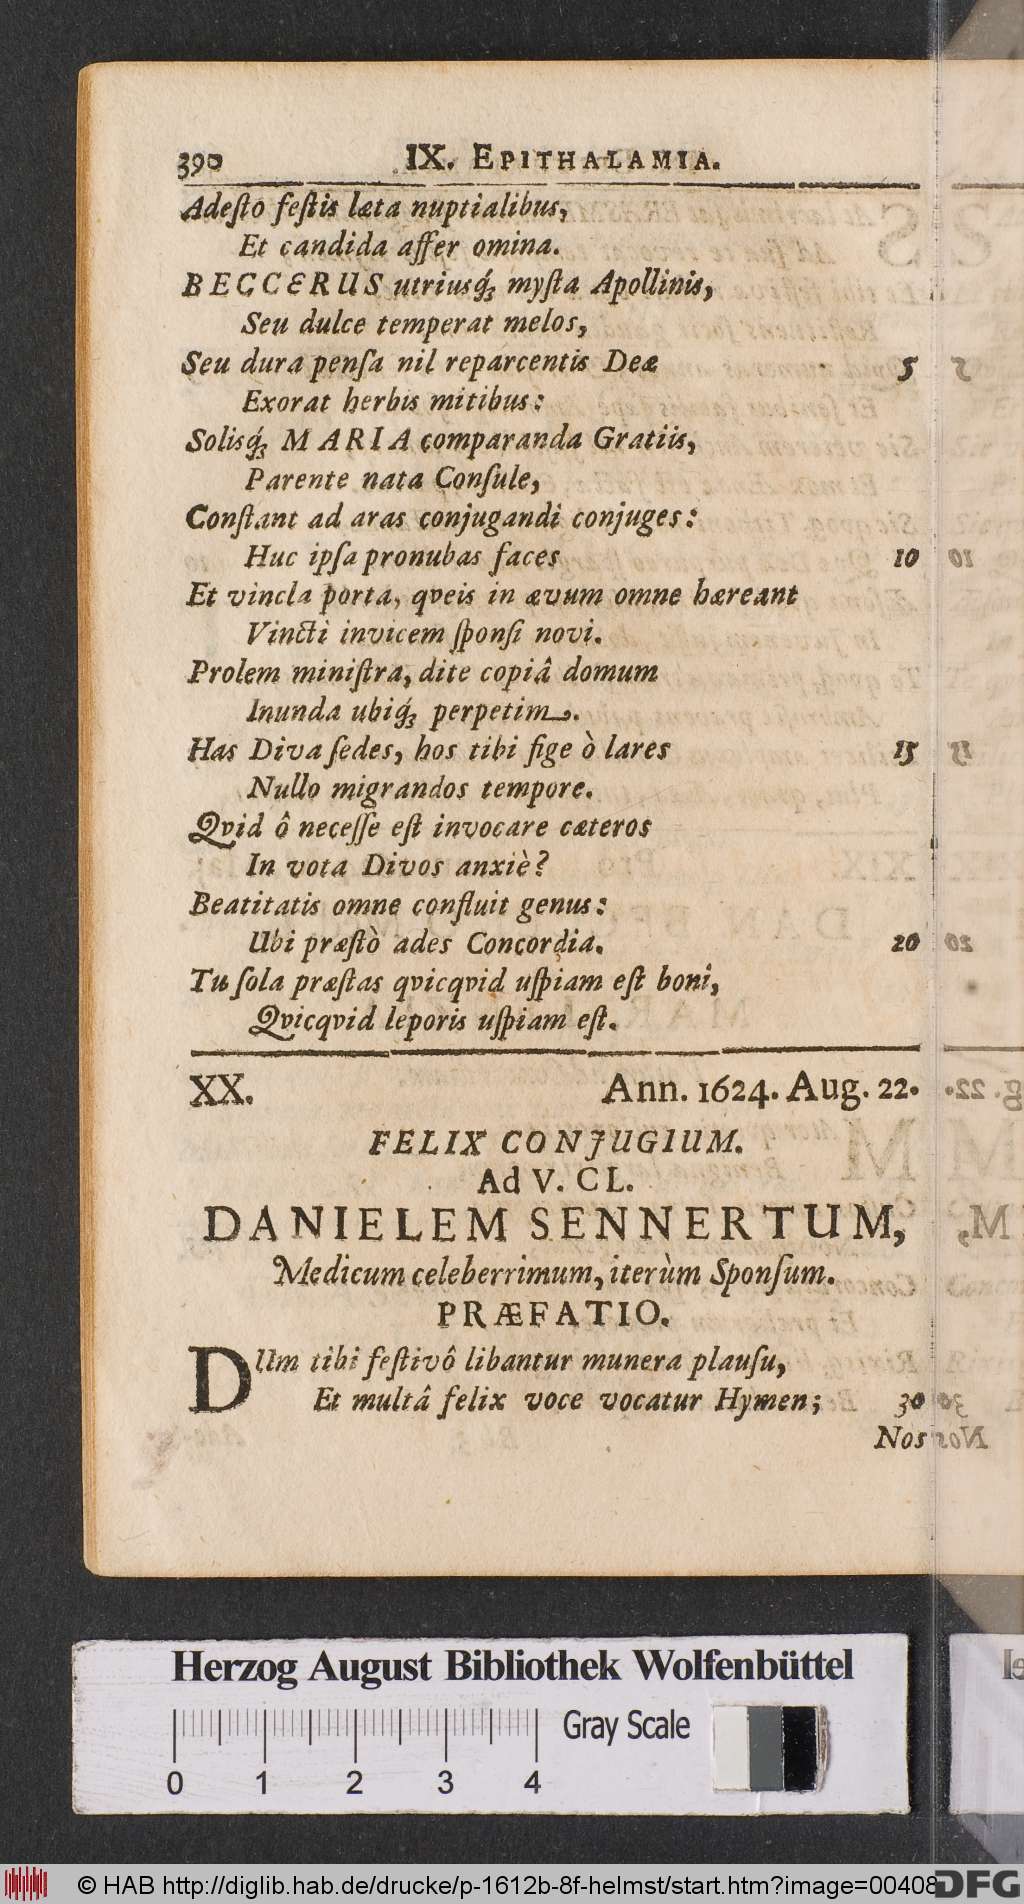 390 IX. EPITHALAMIA.
Adeſto feſtis læta nuptialibus,
Et candida affer omina.
BECCERUS utriusq́ꝫ myſta Apollinis,
Seu dulce temperat melos,
Seu dura penſa nil reparcentis Deæ 5
Exorat herbis mitibus:
Solisq́ꝫ MARIA comparanda Gratiis,
Parente nata Conſule,
Conſtant ad aras conjugandi conjuges:
Huc ipſa pronubas faces 10
Et vincla porta, qveis in ævum omne hæreant
Vincti invicem ſponſi novi.
Prolem miniſtra, dite copiâ domum
Inunda ubiq́ꝫ perpetim.
Has Diva ſedes, hos tibi fige ò lares 15
Nullo migrandos tempore.
Qvid ô neceſſe eſt invocare cæteros
In vota Divos anxiè?
Beatitatis omne confluit genus:
Ubi præſtò ades Concordia. 20
Tu ſola præſtas qvicqvid uſpiam eſt boni,
Qvicqvid leporis uſpiam eſt.
XX. Ann. 1624. Aug. 22.
FELIX CONJUGIUM.
Ad V. CL.
DANIELEM SENNERTUM,
Medicum celeberrimum, iterùm Sponſum.
PRÆFATIO.
DUm tibi feſtivô libantur munera plauſu,
Et multâ felix voce vocatur Hymen; 30
Nos
Herzog August Bibliothek Wolfenbüttel
Gray Scale
0 1 2 3 4
© HAB http://diglib.hab.de/drucke/p-1612b-8f-helmst/start.htm?image=00408
DFG